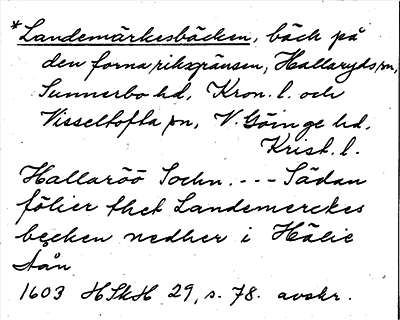 *Landemärkesbäcken, bäck på
den forna riksgränsen, Hallaryds sn,
Sunnerbo hd, Kron. l. och
Visseltofta sn, V. Göinge hd,
Krist. l.
Hallaröö Sochn. --- Sädan
fölier thet Landemerckes
becken nedher i Hälie
Åån
1603 HSkH 29, s. 78. avskr.